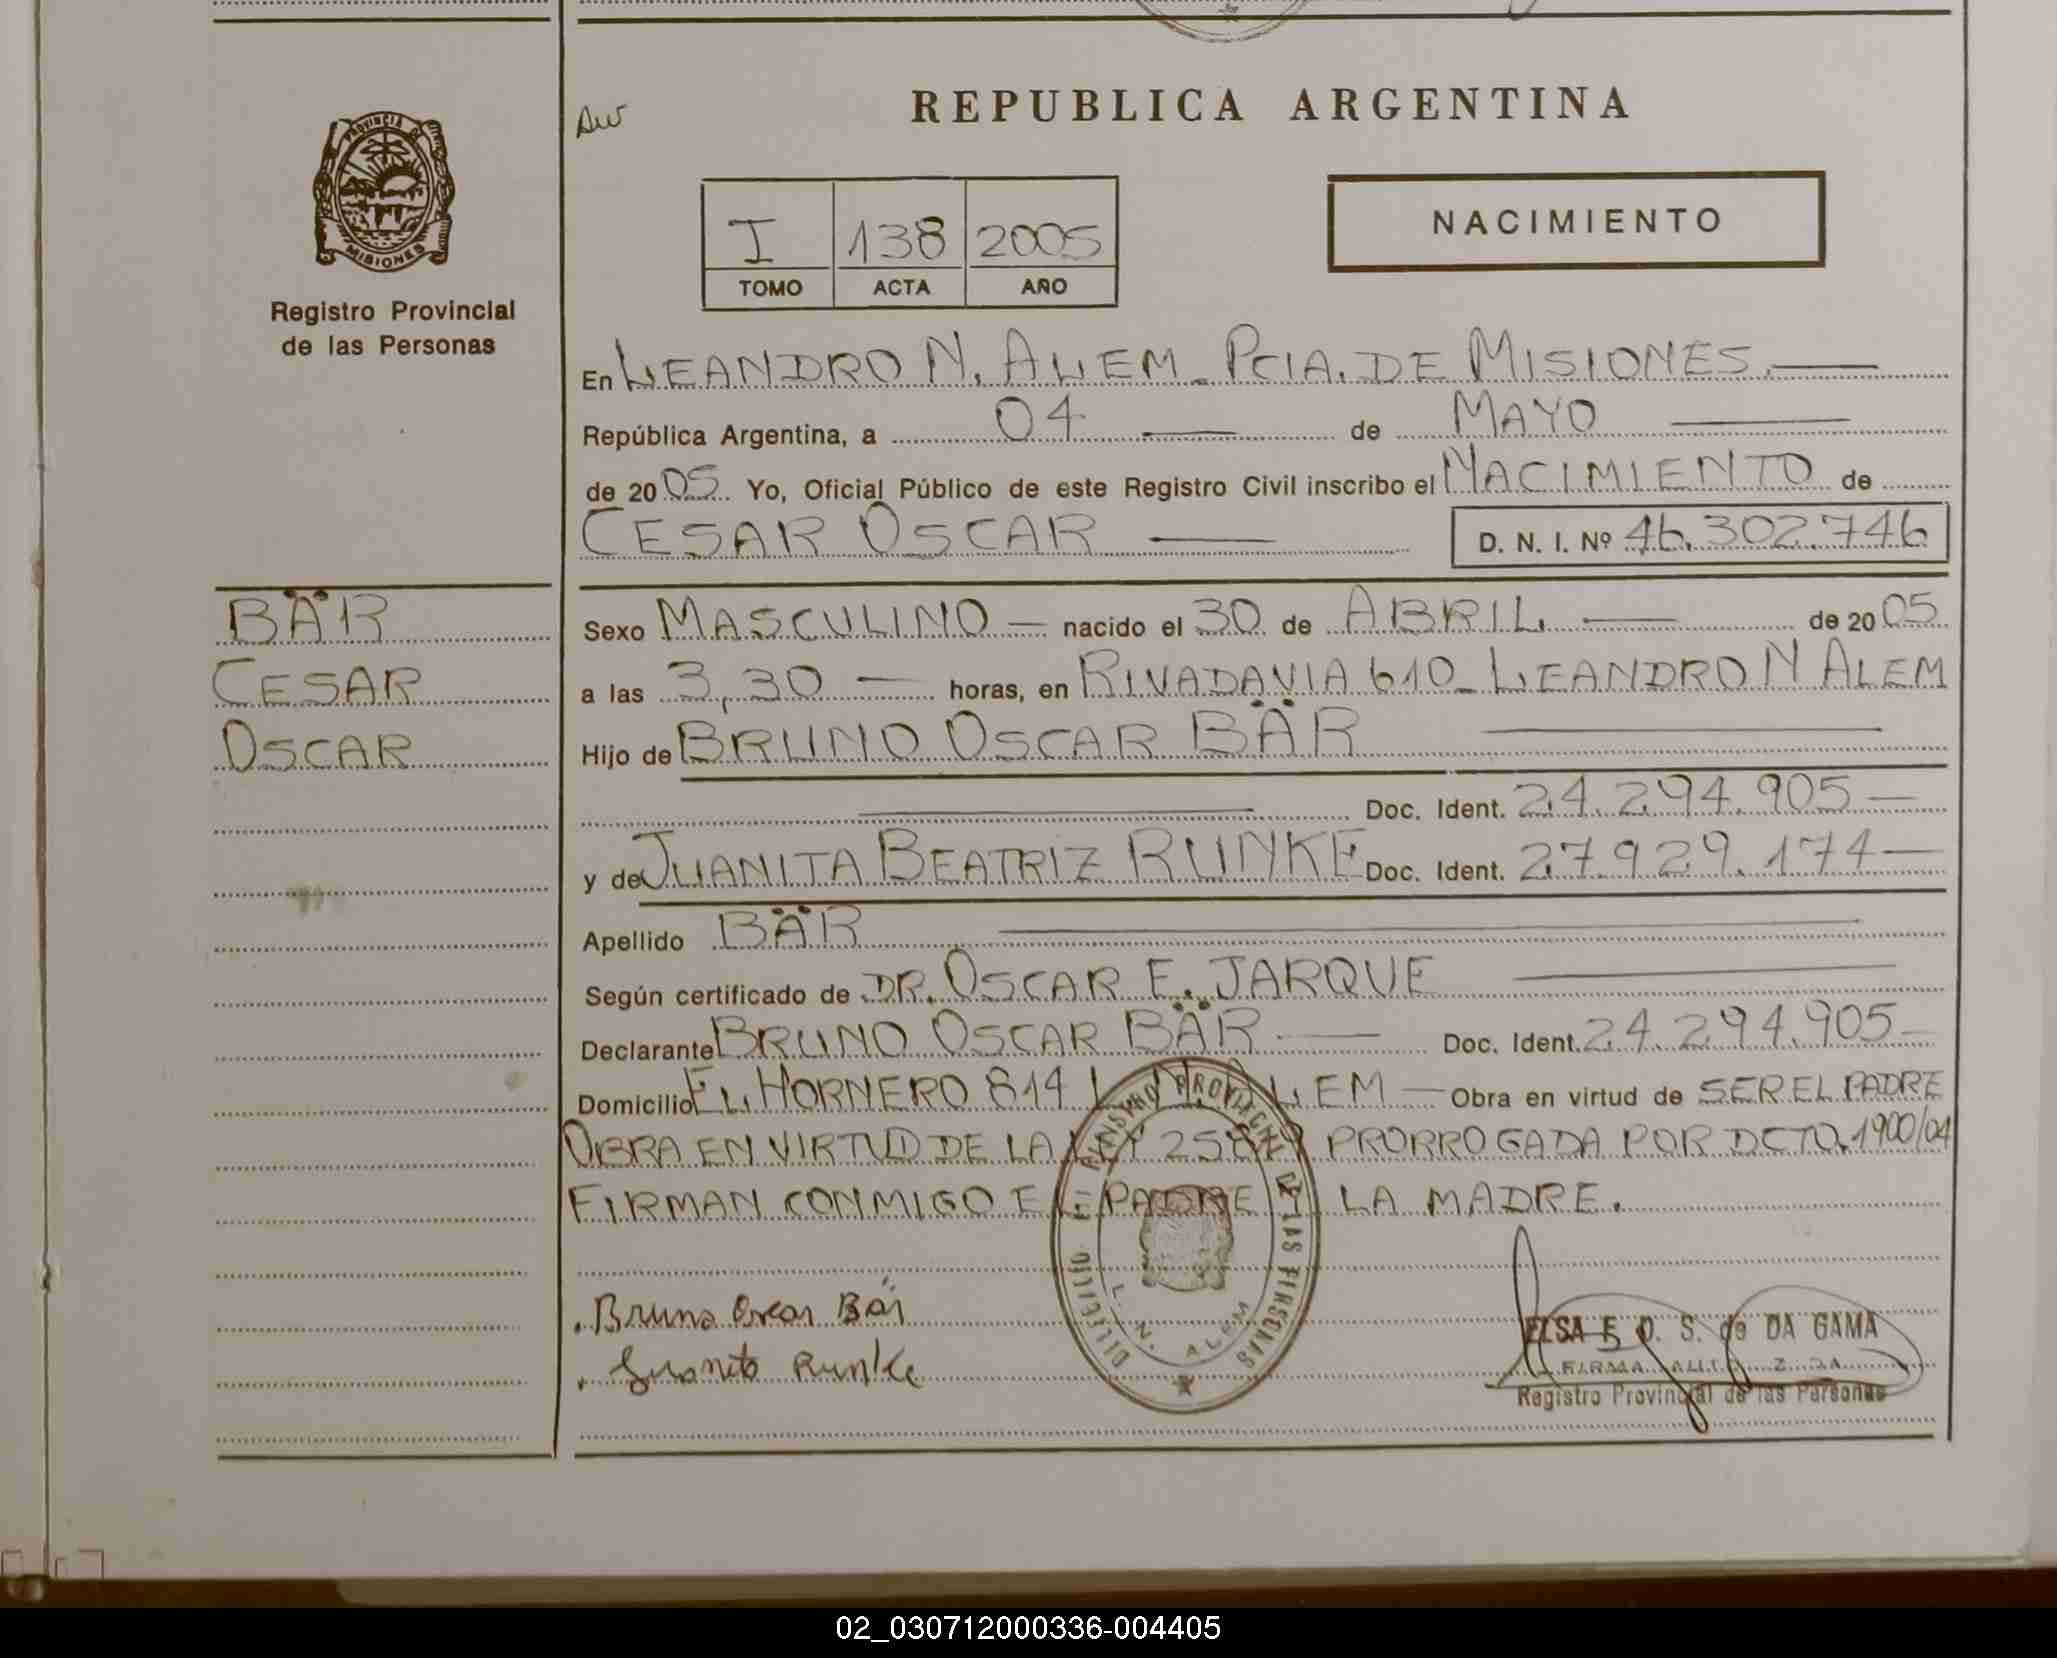 REPUBLICA ARGENTINA
PROVINCIA DE
MISIONES
Registro Provincial
de las Personas
I 138 2005
TOMO ACTA AÑO
NACIMIENTO
En LEANDRO N. ALEM - PCIA. DE MISIONES.
República Argentina, a 04 de MAYO
de 2005 Yo, Oficial Público de este Registro Civil inscribo el NACIMIENTO de
CESAR OSCAR D. N. I. Nº 46.302.746
BÄR
CESAR
OSCAR
Sexo MASCULINO — nacido el 30 de ABRIL — de 2005
a las 3,30 — horas, en RIVADAVIA 610 - LEANDRO N ALEM
Hijo de BRUNO OSCAR BÄR
Doc. Ident. 24.294.905 —
y de JUANITA BEATRIZ RUNKE Doc. Ident. 27.929.174 —
Apellido BÄR
Según certificado de DR. OSCAR E. JARQUE
Declarante BRUNO OSCAR BÄR — Doc. Ident. 24.294.905 —
Domicilio EL HORNERO 814 L. N. ALEM — Obra en virtud de SER EL PADRE
OBRA EN VIRTUD DE LA LEY PRORROGADA POR DCTO. 1900/04
FIRMAN CONMIGO EL PADRE Y LA MADRE.
L. N. ALEM
Bruno Oscar Bär
Juanita Runke
ELSA E. D. S. de DA GAMA
FIRMA AUTORIZADA
Registro Provincial de las Personas
02_030712000336-004405